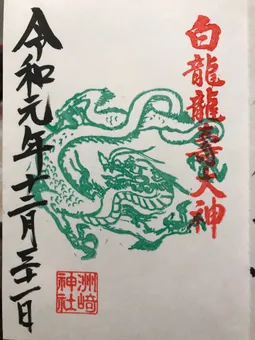 白龍龍寿大神
洲崎
神社
令和元年十二月 一日